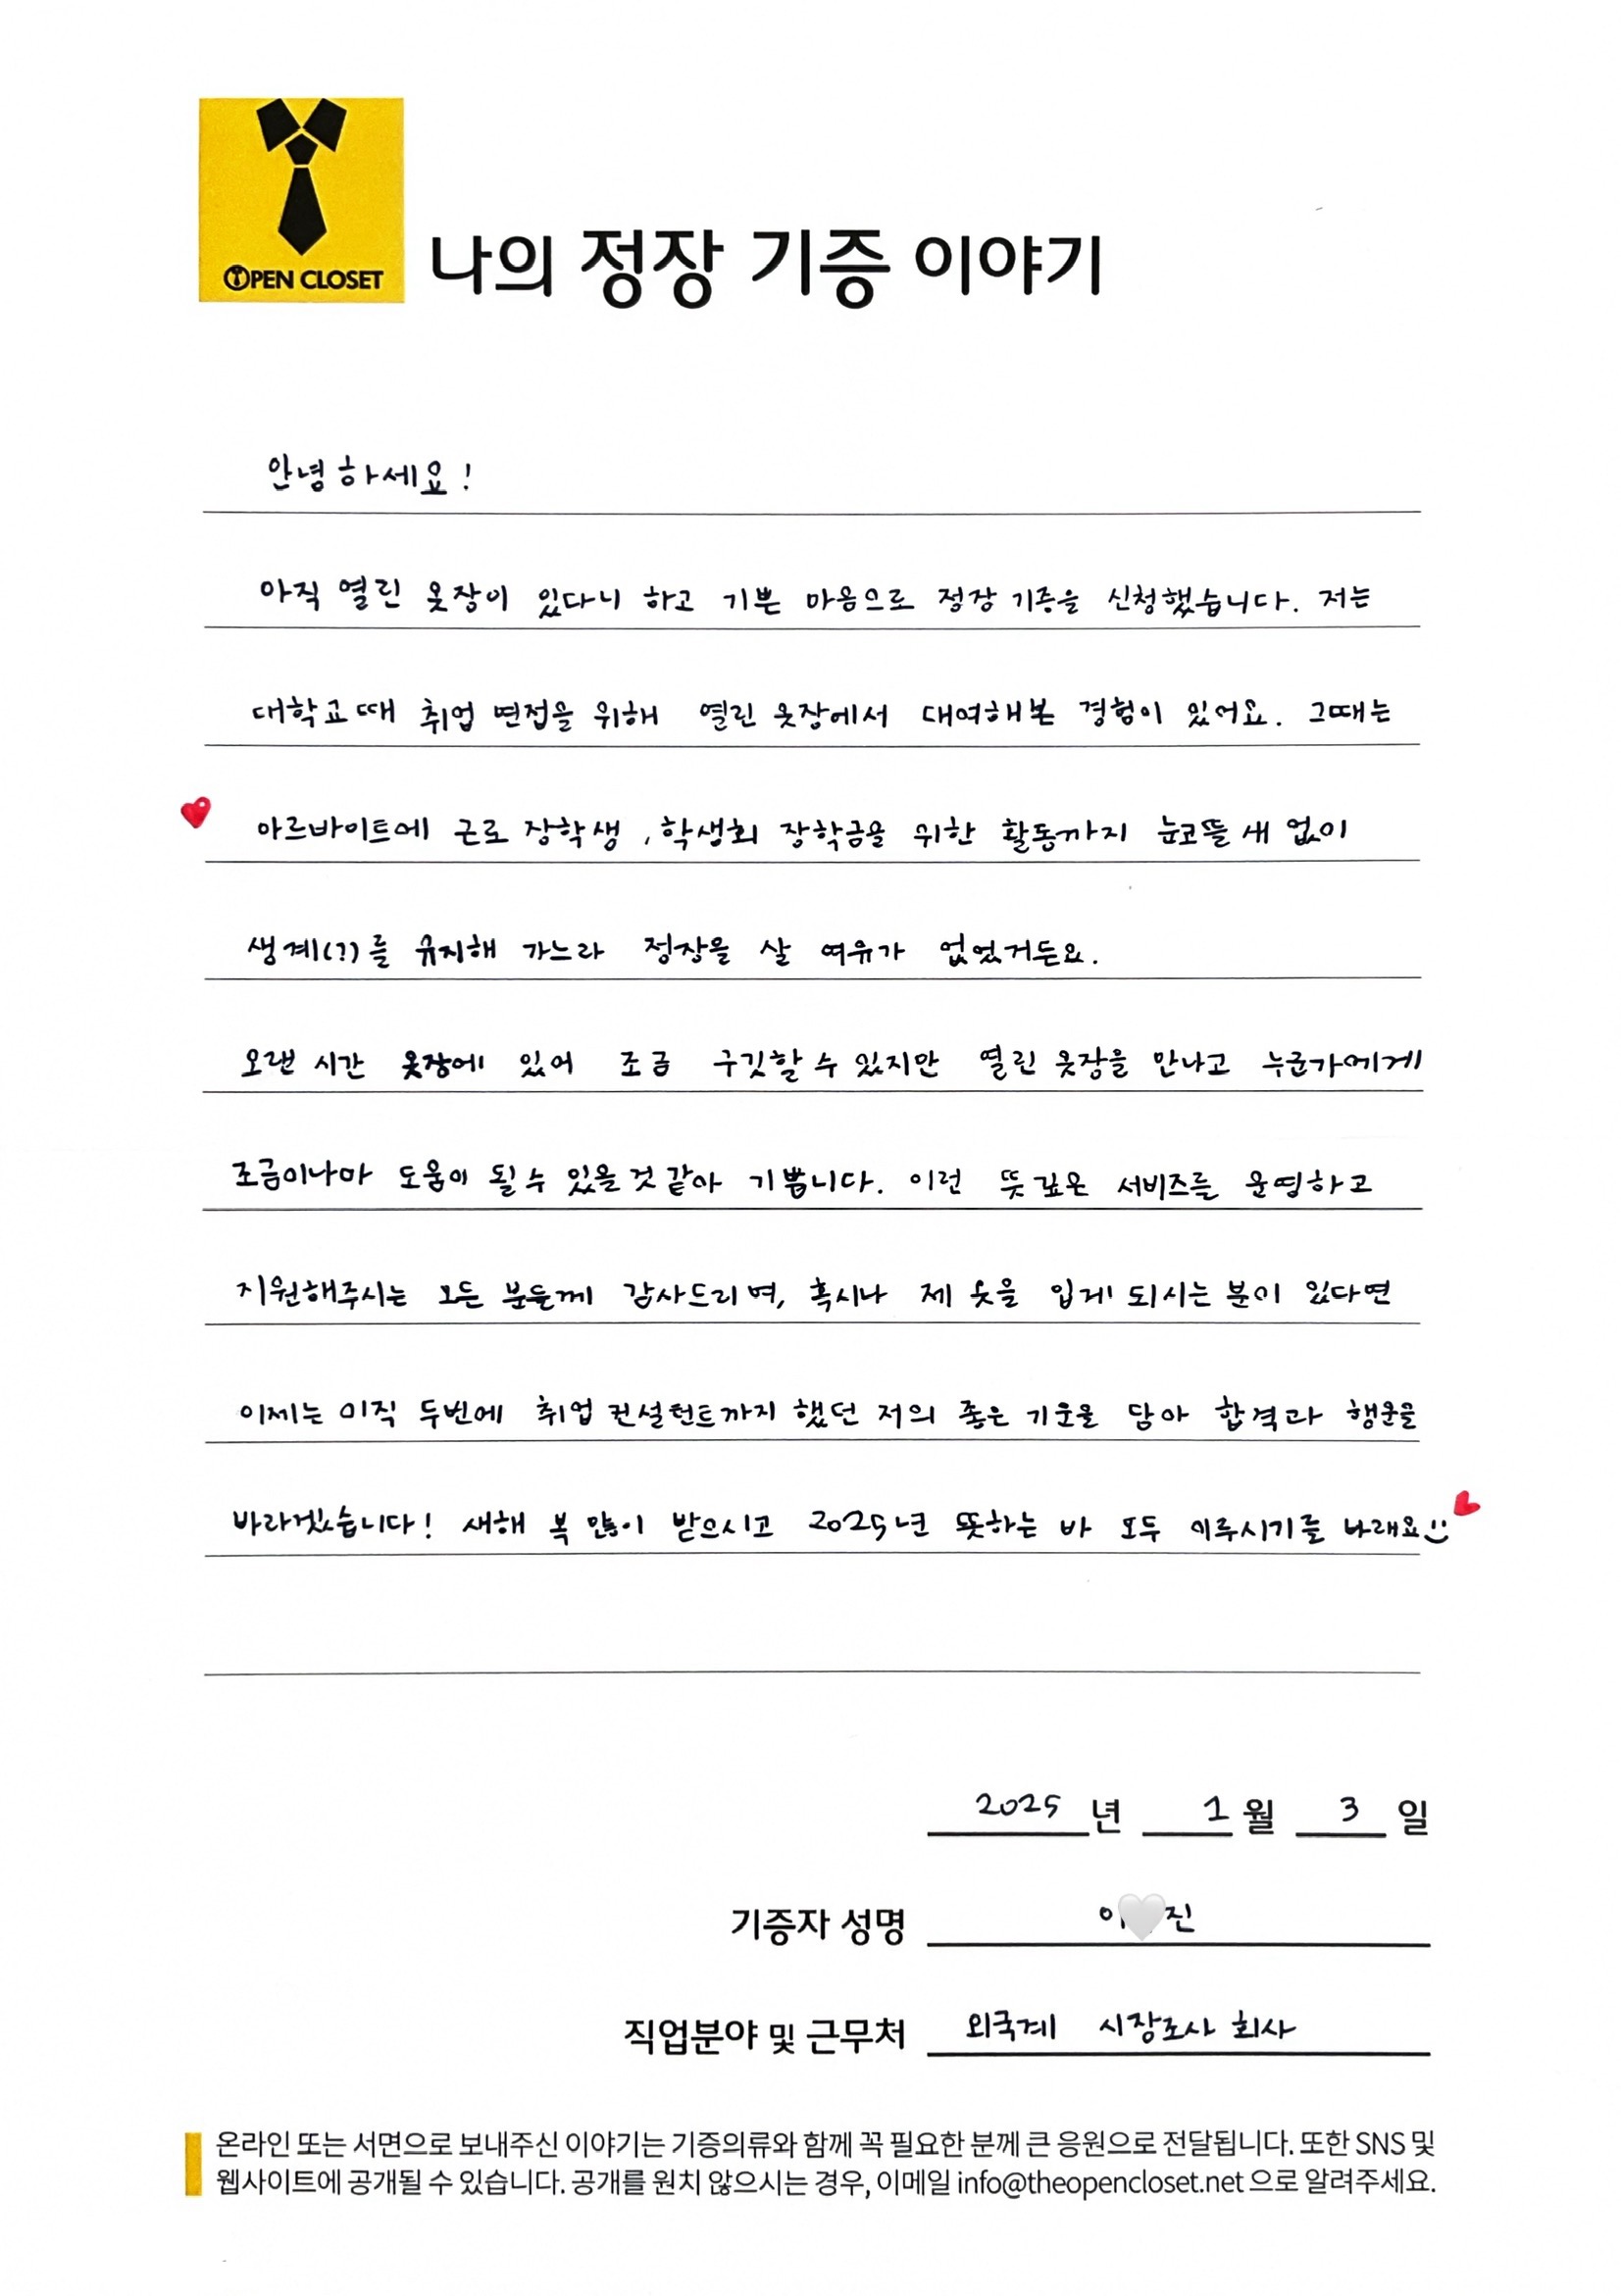 OPEN CLOSET
나의 정장 기증 이야기
안녕하세요!
아직 열린 옷장이 있다니 하고 기쁜 마음으로 정장 기증을 신청했습니다. 저는
대학교때 취업 면접을 위해 열린 옷장에서 대여해본 경험이 있어요. 그때는
아르바이트에 근로 장학생, 학생회 장학금을 위한 활동까지 눈코뜰 새 없이
생계(?)를 유지해 가느라 정장을 살 여유가 없었거든요.
오랜 시간 옷장에 있어 조금 구깃할 수 있지만 열린 옷장을 만나고 누군가에게
조금이나마 도움이 될 수 있을것 같아 기쁩니다. 이런 뜻 깊은 서비즈를 운영하고
지원해주시는 모든 분들께 감사드리며, 혹시나 제 옷을 입게 되시는 분이 있다면
이제는 이직 두번에 취업 컨설턴트까지 했던 저의 좋은 기운을 담아 합격과 행운을
바라겠습니다! 새해 복 많이 받으시고 2025년 뜻하는 바 모두 이루시기를 바래요
2025년 1월 3일
기증자 성명 이 진
직업분야 및 근무처 외국계 시장조사 회사
온라인 또는 서면으로 보내주신 이야기는 기증의류와 함께 꼭 필요한 분께 큰 응원으로 전달됩니다. 또한 SNS 및
웹사이트에 공개될 수 있습니다. 공개를 원치 않으시는 경우, 이메일 info@theopencloset.net 으로 알려주세요.